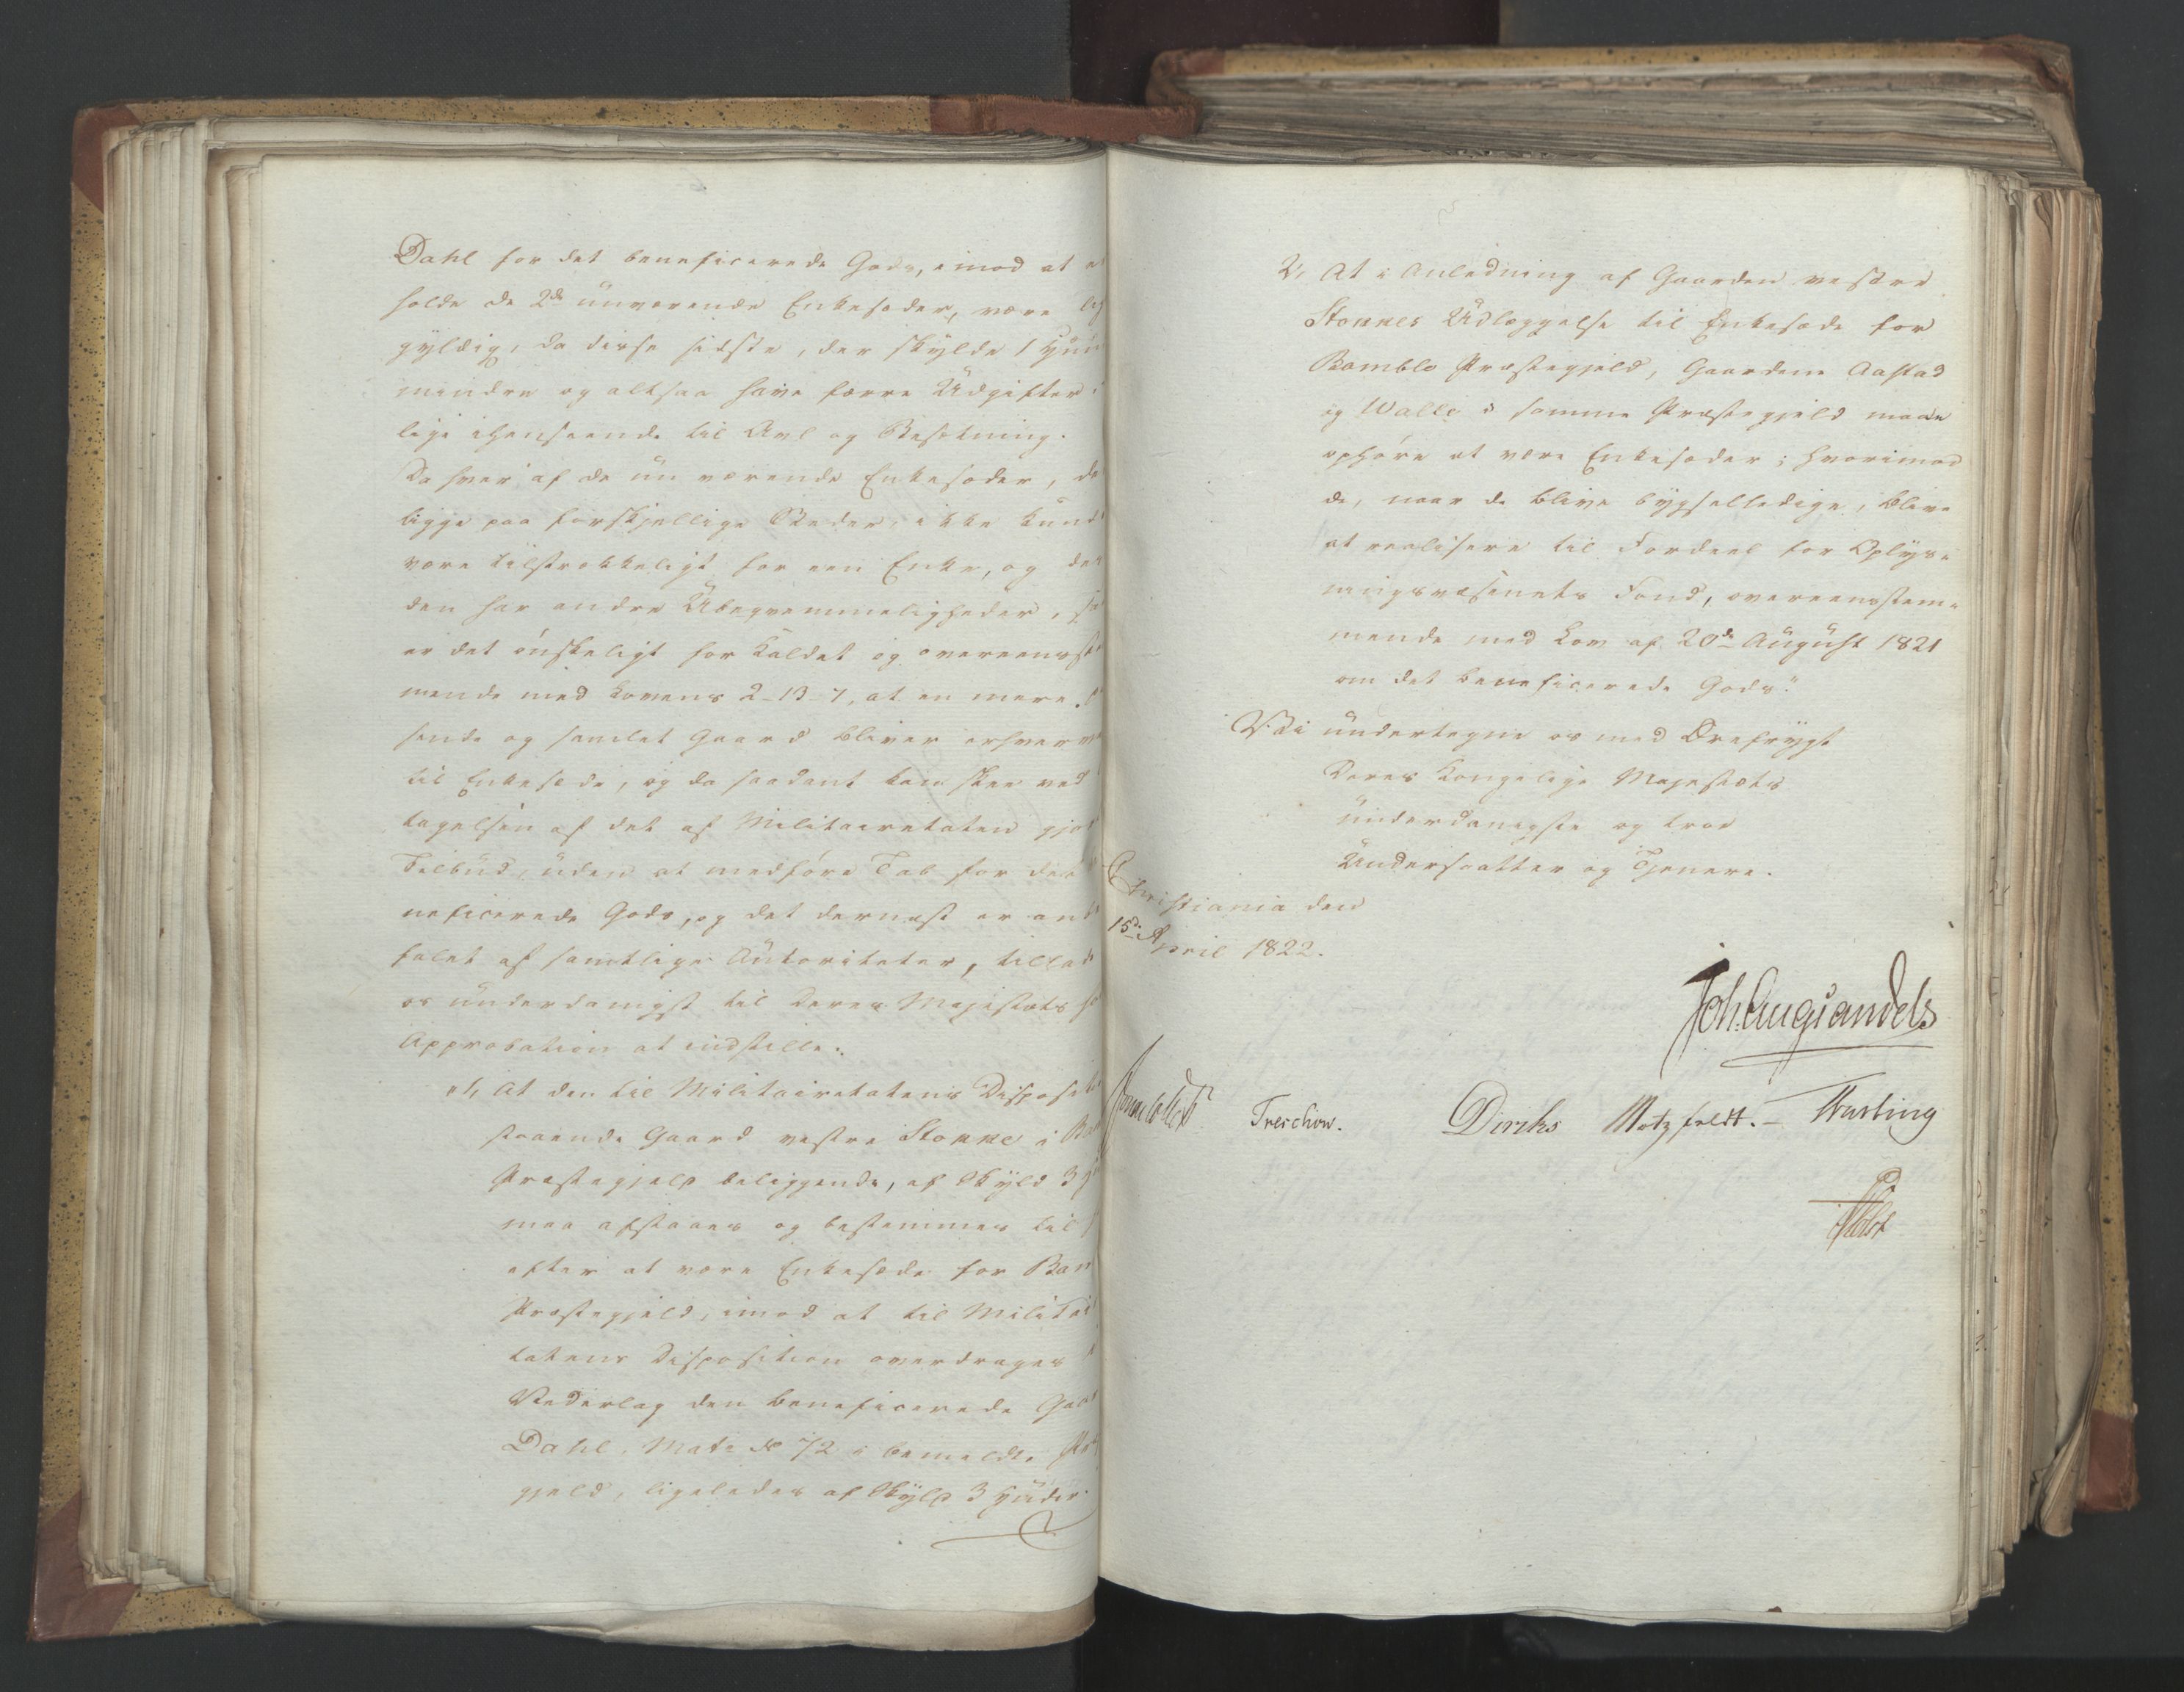 Dahl for det beneficerede Gods, imod at
holde de 2de nuværende Enkesæder, være
gyldig, da disse sidste, der skylde 1 Huud
mindre og altsaa have færre Udgifter
lige ihenseende til Avl og Besætning.
Da hver af de nu værende Enkesæder, de
ligge paa forskjellige Steder, ikke kunde
være tilstrækkeligt for een Enke, og des
den har andre Ubeqvemmeligheder, saa
er det ønskeligt for Kaldet og overeensstem
mende med Lovens 2-13-7, at en mere
sende og samlet Gaard bliver erhvervet
til Enkesæde, og da saadant kan skee ved
tagelsen af det af Militairetaten gjorte
Tilbud, uden at medføre Tab for det
neficerede Gods, og det dernæst er anbe
falet af samtlige Autoriteter, tillade
os underdanigst til Deres Majestæts
Approbation at indstille:
"1, At den til Militairetatens Disposition
staaende Gaard vestre Stokke i Bam
Præstegjeld beliggende, af Skyld 3
maa afstaaes og bestemmes til
efter at være Enkesæde for Bam
Præstegjeld, imod at til Militai
tatens Disposition overdrages
Vederlag den beneficerede Gaard
Dahl, Mats No 72 i bemeldte Præ
gjeld, ligeledes af Skyld 3 Huder.
2, At i Anledning af Gaarden vestre
Stokkes Udlæggelse til Enkesæde for
Bamble Præstegjeld, Gaardene Aastad
og Walle i samme Præstegjeld maae
ophøre at være Enkesæder; hvorimod
de, naar de blive bygselledige, blive
at realisere til Fordeel for Oplys-
ningsvæsenets Fond, overeensstem-
mende med Lov af 20de August 1821
om det beneficerede Gods."
Vi undertegne os med Ærefrygt
Deres Kongelige Majestæts
underdanigste og troe
Undersaatter og Tjenere.
Christiania den
15de April 1822.
Joh. Aug Sandels
Jonas Collett Treschow. Diriks Motzfeldt. Fasting
Holst